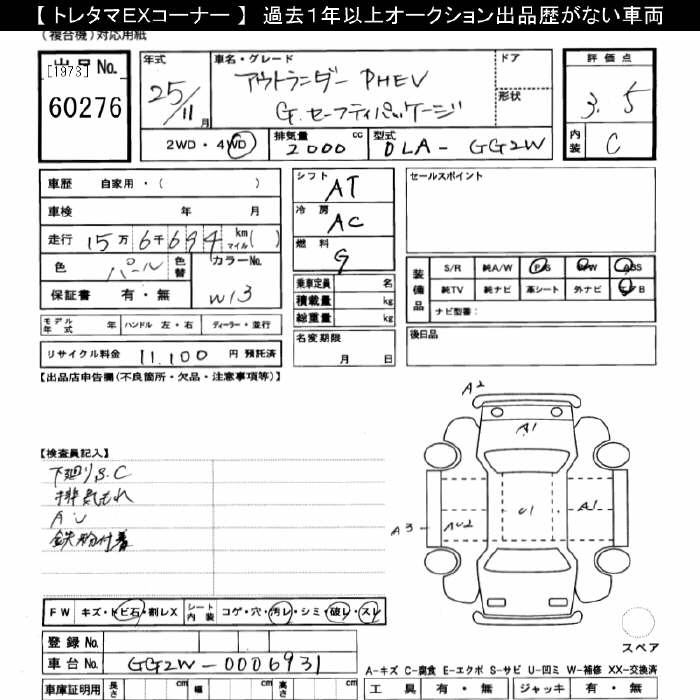 【 トレタマEXコーナー 】 過去１年以上オークション出品歴がない車両
(複合機)対応用紙
出品No.
[1973]
60276
年式
25/11月
車名・グレード
アウトランダー PHEV
G.セーフティパッケージ
ドア
形状
評価点
3.5
内装
C
2WD・4WD
排気量
2000 cc
型式
DLA-GG2W
車歴 自家用・( )
車検 年 月
走行 15万6千694 km マイル( )
色 パール 色替
カラーNo.
W13
保証書 有・無
シフト AT
冷房 AC
燃料 G
乗車定員 名
積載量 kg
総重量 kg
名変期限
月 日
セールスポイント
装備品
S/R 純A/W P/S P/W ABS
純TV 純ナビ 革シート 外ナビ エアB
ナビ型番：
後日品
モデル年式 年 ハンドル 左・右 ディーラー・並行
リサイクル料金 11,100 円 預託済
【出品店申告欄(不良箇所・欠品・注意事項等)】
【検査員記入】
下廻りS.C
排気もれ
AU
鉄粉付着
A2
A1
A3
AU2
U1
A1
FW キズ・トビ石・割レX
シート内装 コゲ・穴・汚レ・シミ・破レ・スレ
登録No.
車台No. GG2W-0006931
車庫証明用 長さ cm 幅 cm 高さ cm
スペア
A-キズ C-腐食 E-エクボ S-サビ U-凹ミ W-補修 XX-交換済
工具 有・無 ジャッキ 有・無